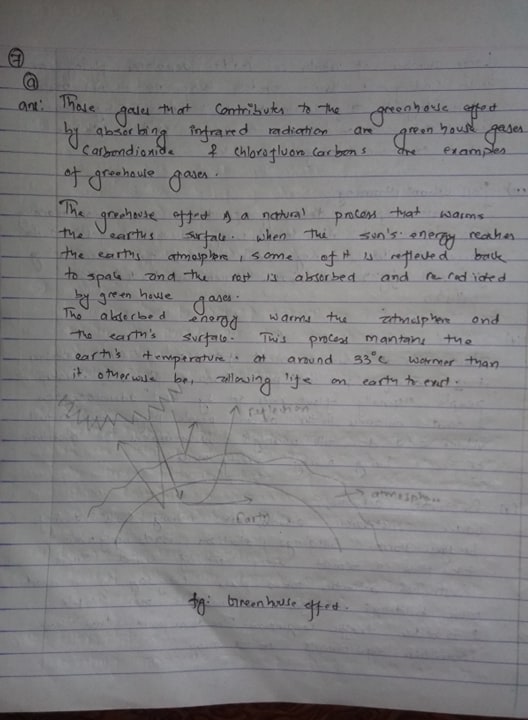 7
a
ans: Those gases that contributes to the greenhouse effect
by absorbing infrared radiation are green house gases.
Carbondioxide & chlorofluorocarbons are examples
of greehouse gases.
The greehouse effect is a natural process that warms
the earths surface. when the sun's energy reaches
the earths atmosphere, some of it is reflected back
to space and the rest is absorbed and re-radiated
by green house gases.
The absorbed energy warms the atmosphere and
the earth's surface. This process mantans the
earth's temperature at around 33°c warmer than
it otherwise be, allowing life on earth to exist.
reflection
atmosphere
Earth
fig: Greenhouse effect.